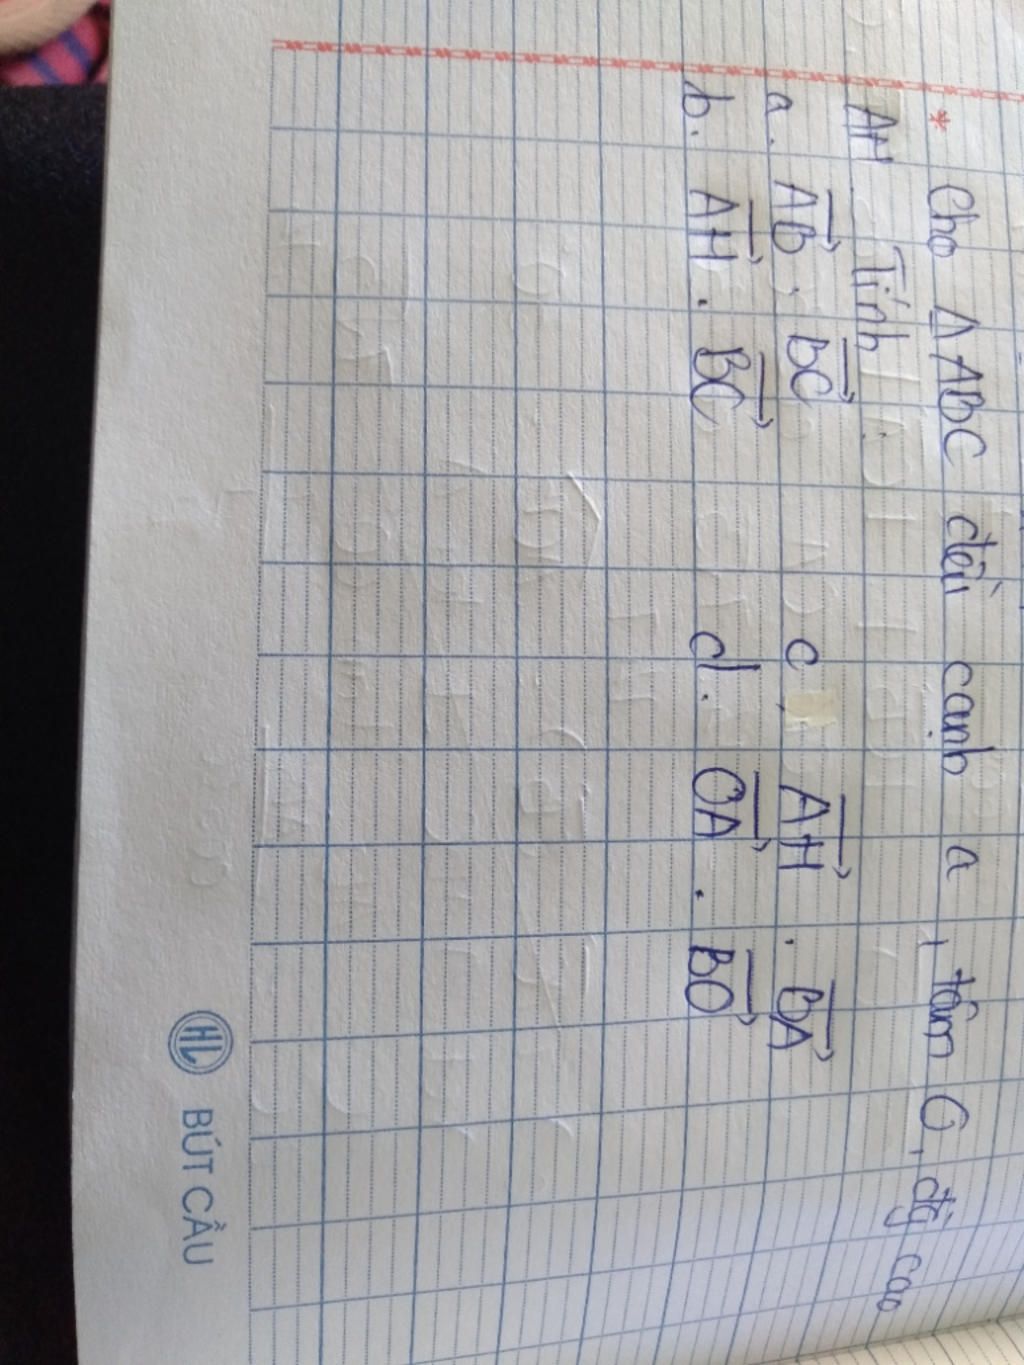 * Cho ΔABC đều cạnh a, tâm O, đg cao
AH Tính
a. AB . BC c, AH . BA
b. AH . BC d. OA . BO
HL BÚT CẦU